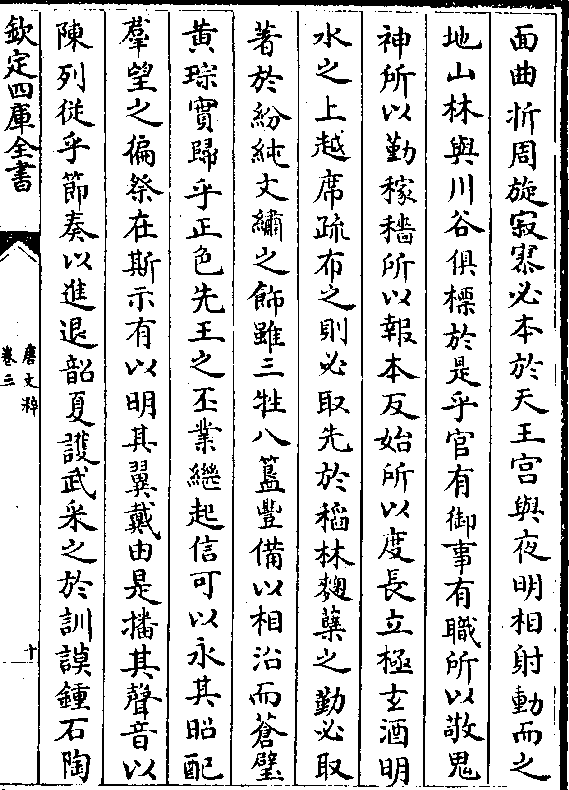 面曲折周旋寂寥必本於天王宫與夜明相射動而之
地山林與川谷俱標於是乎官有御事有職所以敬鬼
神所以勤稼穡所以報本反始所以度長立極玄酒明
水之上越席疏布之則必取先於稻秫麴蘖之勤必取
著於紛純文繡之飾雖三牲八簋豐備以相沿而蒼璧
黄琮實歸乎正色先王之丕業繼起信可以永其昭配
羣望之徧祭在斯示有以明其翼戴由是播其聲音以
陳列從乎節奏以進退韶夏頀武采之於訓謨鍾石陶
欽定四庫全書
唐文粹
卷三
十